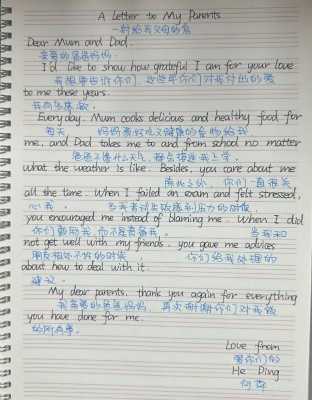 A Letter to My Parents
一封给我父母的信
Dear Mum and Dad,
亲爱的爸爸妈妈
I'd like to show how grateful I am for your love
我想要告诉你们，这些年你们对我付出的爱
to me these years.
我有多感激.
Everyday, Mum cooks delicious and healthy food for
每天 妈妈煮好吃又健康的食物给我
me, and Dad takes me to and from school no matter
爸爸不管什么天气，都会接送我上学.
what the weather is like. Besides, you care about me
除此之外，你们一直很关
all the time. When I failed an exam and felt stressed,
心我. 当我考试失败感到压力的时候，
you encouraged me instead of blaming me. When I did
你们鼓励我，而不是责备我. 当我和
not get well with my friends, you gave me advices
朋友相处不好的时候， 你们给我处理的
about how to deal with it.
建议.
My dear parents, thank you again for everything
我亲爱的爸爸妈妈，再次谢谢你们对我做
you have done for me.
的所有事.
Love from
爱你们的
He Ping
何萍